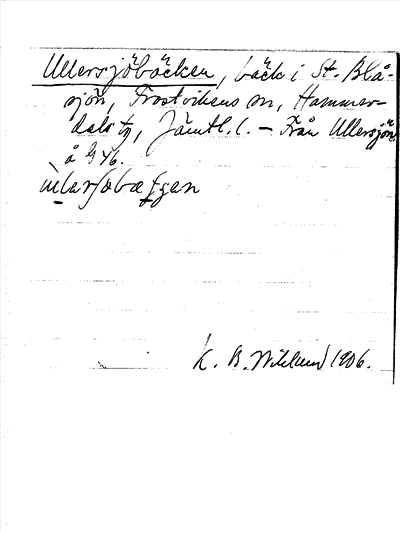 Ullersjöbäcken, bäck i St. Blå-
sjön, Frostvikens sn, Hammer-
dals tg, Jämtl. l. – Från Ullersjön
å G 46.
K. B. Wiklund 1906.